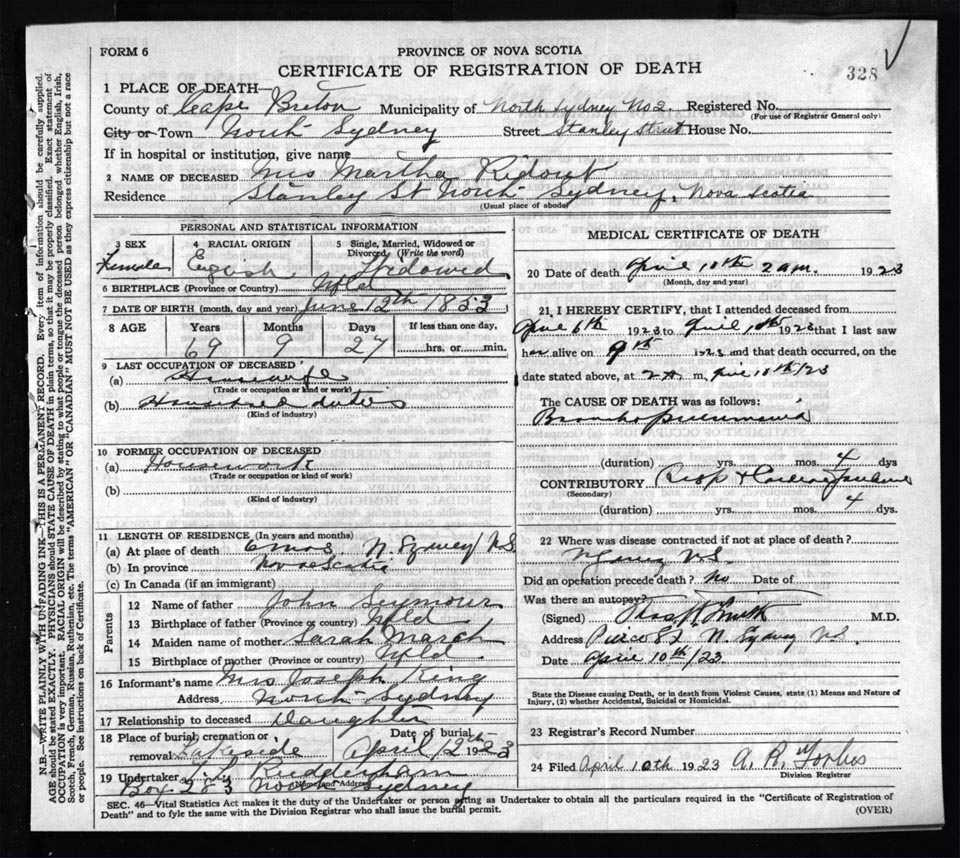 FORM 6
PROVINCE OF NOVA SCOTIA
CERTIFICATE OF REGISTRATION OF DEATH
328
1 PLACE OF DEATH—
County of Cape Breton Municipality of North Sydney No 2. Registered No.
(For use of Registrar General only)
City or Town North Sydney Street Stanley Street House No.
If in hospital or institution, give name
2 NAME OF DECEASED Mrs Martha Ridout
Residence Stanley St North Sydney, Nova Scotia
(Usual place of abode)
PERSONAL AND STATISTICAL INFORMATION
3 SEX Female
4 RACIAL ORIGIN English
5 Single, Married, Widowed or Divorced (Write the word) Widowed
6 BIRTHPLACE (Province or Country) Nfld
7 DATE OF BIRTH (month, day and year) June 12th 1853
8 AGE Years Months Days If less than one day,
69 9 27 hrs. or min.
9 LAST OCCUPATION OF DECEASED
(a) Housewife
(Trade or occupation or kind of work)
(b) Household duties
(Kind of industry)
10 FORMER OCCUPATION OF DECEASED
(a) Housework
(Trade or occupation or kind of work)
(b)
(Kind of industry)
11 LENGTH OF RESIDENCE (In years and months)
(a) At place of death 6 mos. N. Sydney NS
(b) In province Nova Scotia
(c) In Canada (if an immigrant)
Parents
12 Name of father John Seymour
13 Birthplace of father (Province or country) Nfld
14 Maiden name of mother Sarah March
15 Birthplace of mother (Province or country) Nfld
16 Informant's name Mrs Joseph King
Address North Sydney
17 Relationship to deceased Daughter
18 Place of burial, cremation or removal Lakeside Date of burial April 12th 1923
19 Undertaker
(Name and Address)
Box 283 North Sydney
MEDICAL CERTIFICATE OF DEATH
20 Date of death April 10th 2 am. 1923
(Month, day and year)
21, I HEREBY CERTIFY, that I attended deceased from
April 6th 1923 to April 10th 1923 that I last saw
her alive on 9th 1923 and that death occurred, on the
date stated above, at 2 A m. April 10th/23
The CAUSE OF DEATH was as follows:
Broncho pneumonia
(duration) yrs. mos. 4 dys
CONTRIBUTORY Resp + Cardiac failure
(Secondary)
(duration) yrs. mos. 4 dys.
22 Where was disease contracted if not at place of death?
N. Sydney NS
Did an operation precede death? No Date of
Was there an autopsy?
(Signed) Smith M.D.
Address Pierce St N. Sydney NS.
Date April 10th/23
State the Disease causing Death, or in death from Violent Causes, state (1) Means and Nature of
Injury, (2) whether Accidental, Suicidal or Homicidal.
23 Registrar's Record Number
24 Filed April 10th 1923 A. R. Forbes
Division Registrar
SEC. 46—Vital Statistics Act makes it the duty of the Undertaker or person acting as Undertaker to obtain all the particulars required in the "Certificate of Registration of
Death" and to fyle the same with the Division Registrar who shall issue the burial permit.
(OVER)
N.B.—WRITE PLAINLY WITH UNFADING INK—THIS IS A PERMANENT RECORD. Every item of information should be carefully supplied.
AGE should be stated EXACTLY. PHYSICIANS should STATE CAUSE OF DEATH in plain terms, so that it may be properly classified. Exact statement of
OCCUPATION is very important. RACIAL ORIGIN will be described by stating to what people or tongue the deceased person belonged whether English, Irish,
Scotch, French, German, Russian, Ruthenian, etc. The terms "AMERICAN" OR "CANADIAN" MUST NOT BE USED as they express citizenship but not a race
or people. See instructions on back of Certificate.